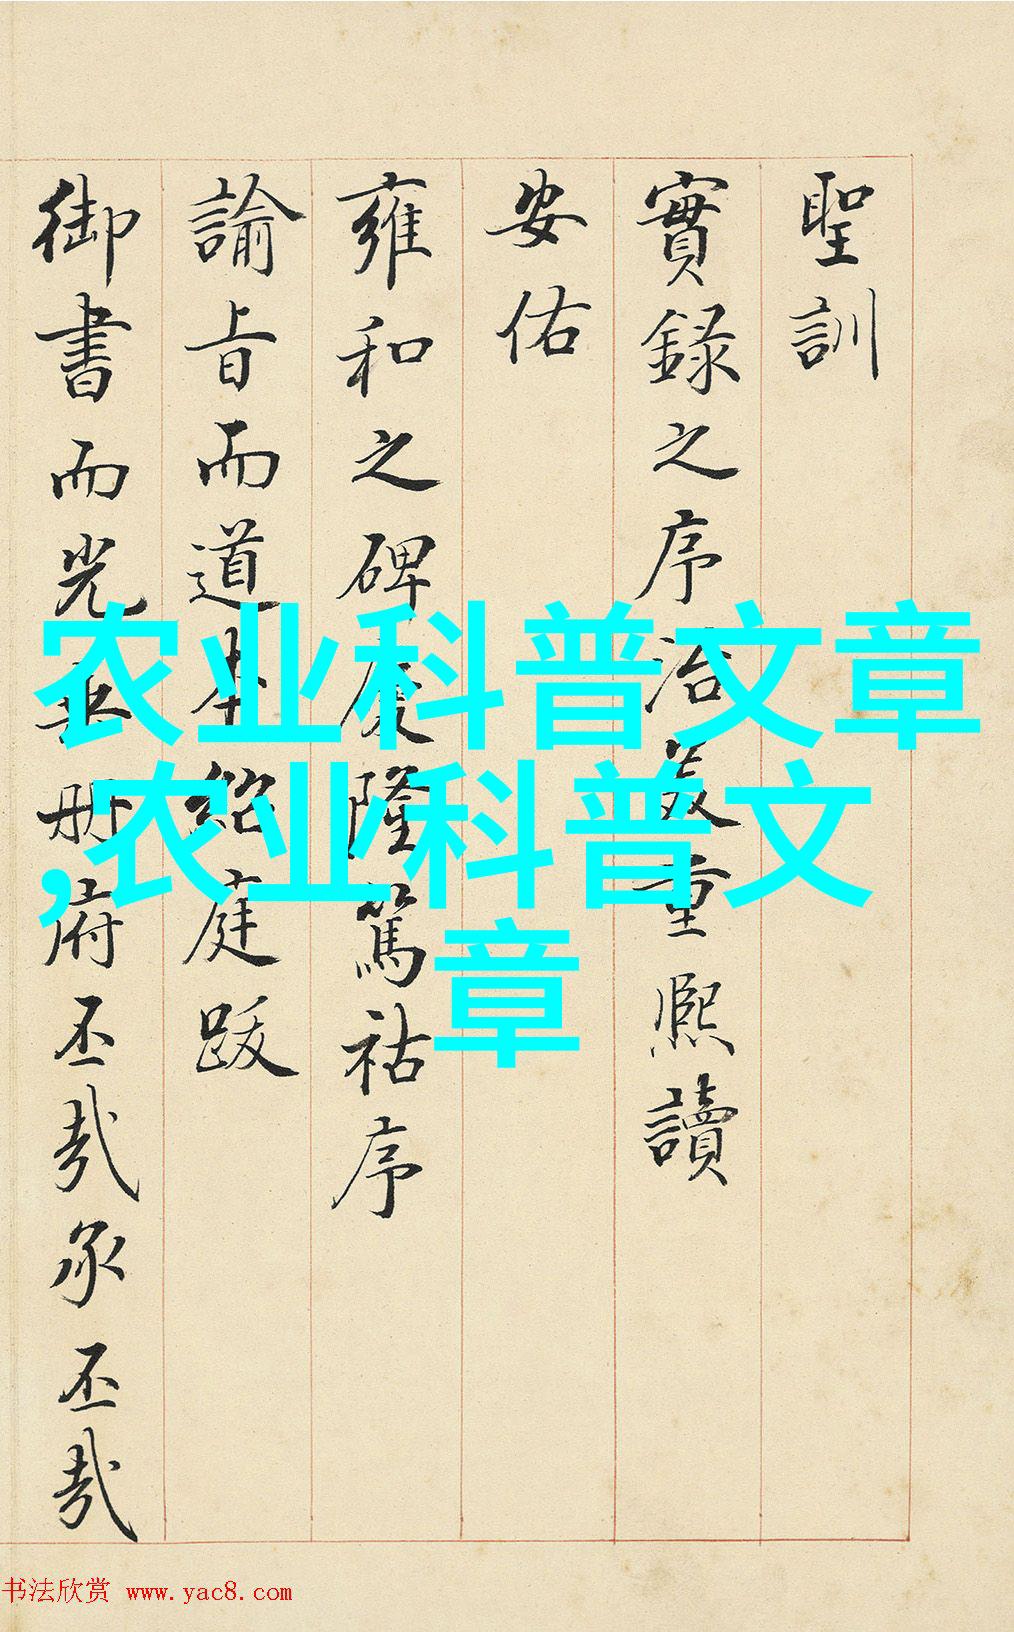 聖訓
實錄之序治美重熙讀
安佑
雍和之碑慶隆篤祜序
諭旨而道本紹庭跋
御書而光垂冊府丕哉承丕哉
农业科普文章
,农业科普文
章
书法欣赏 www.yac8.com